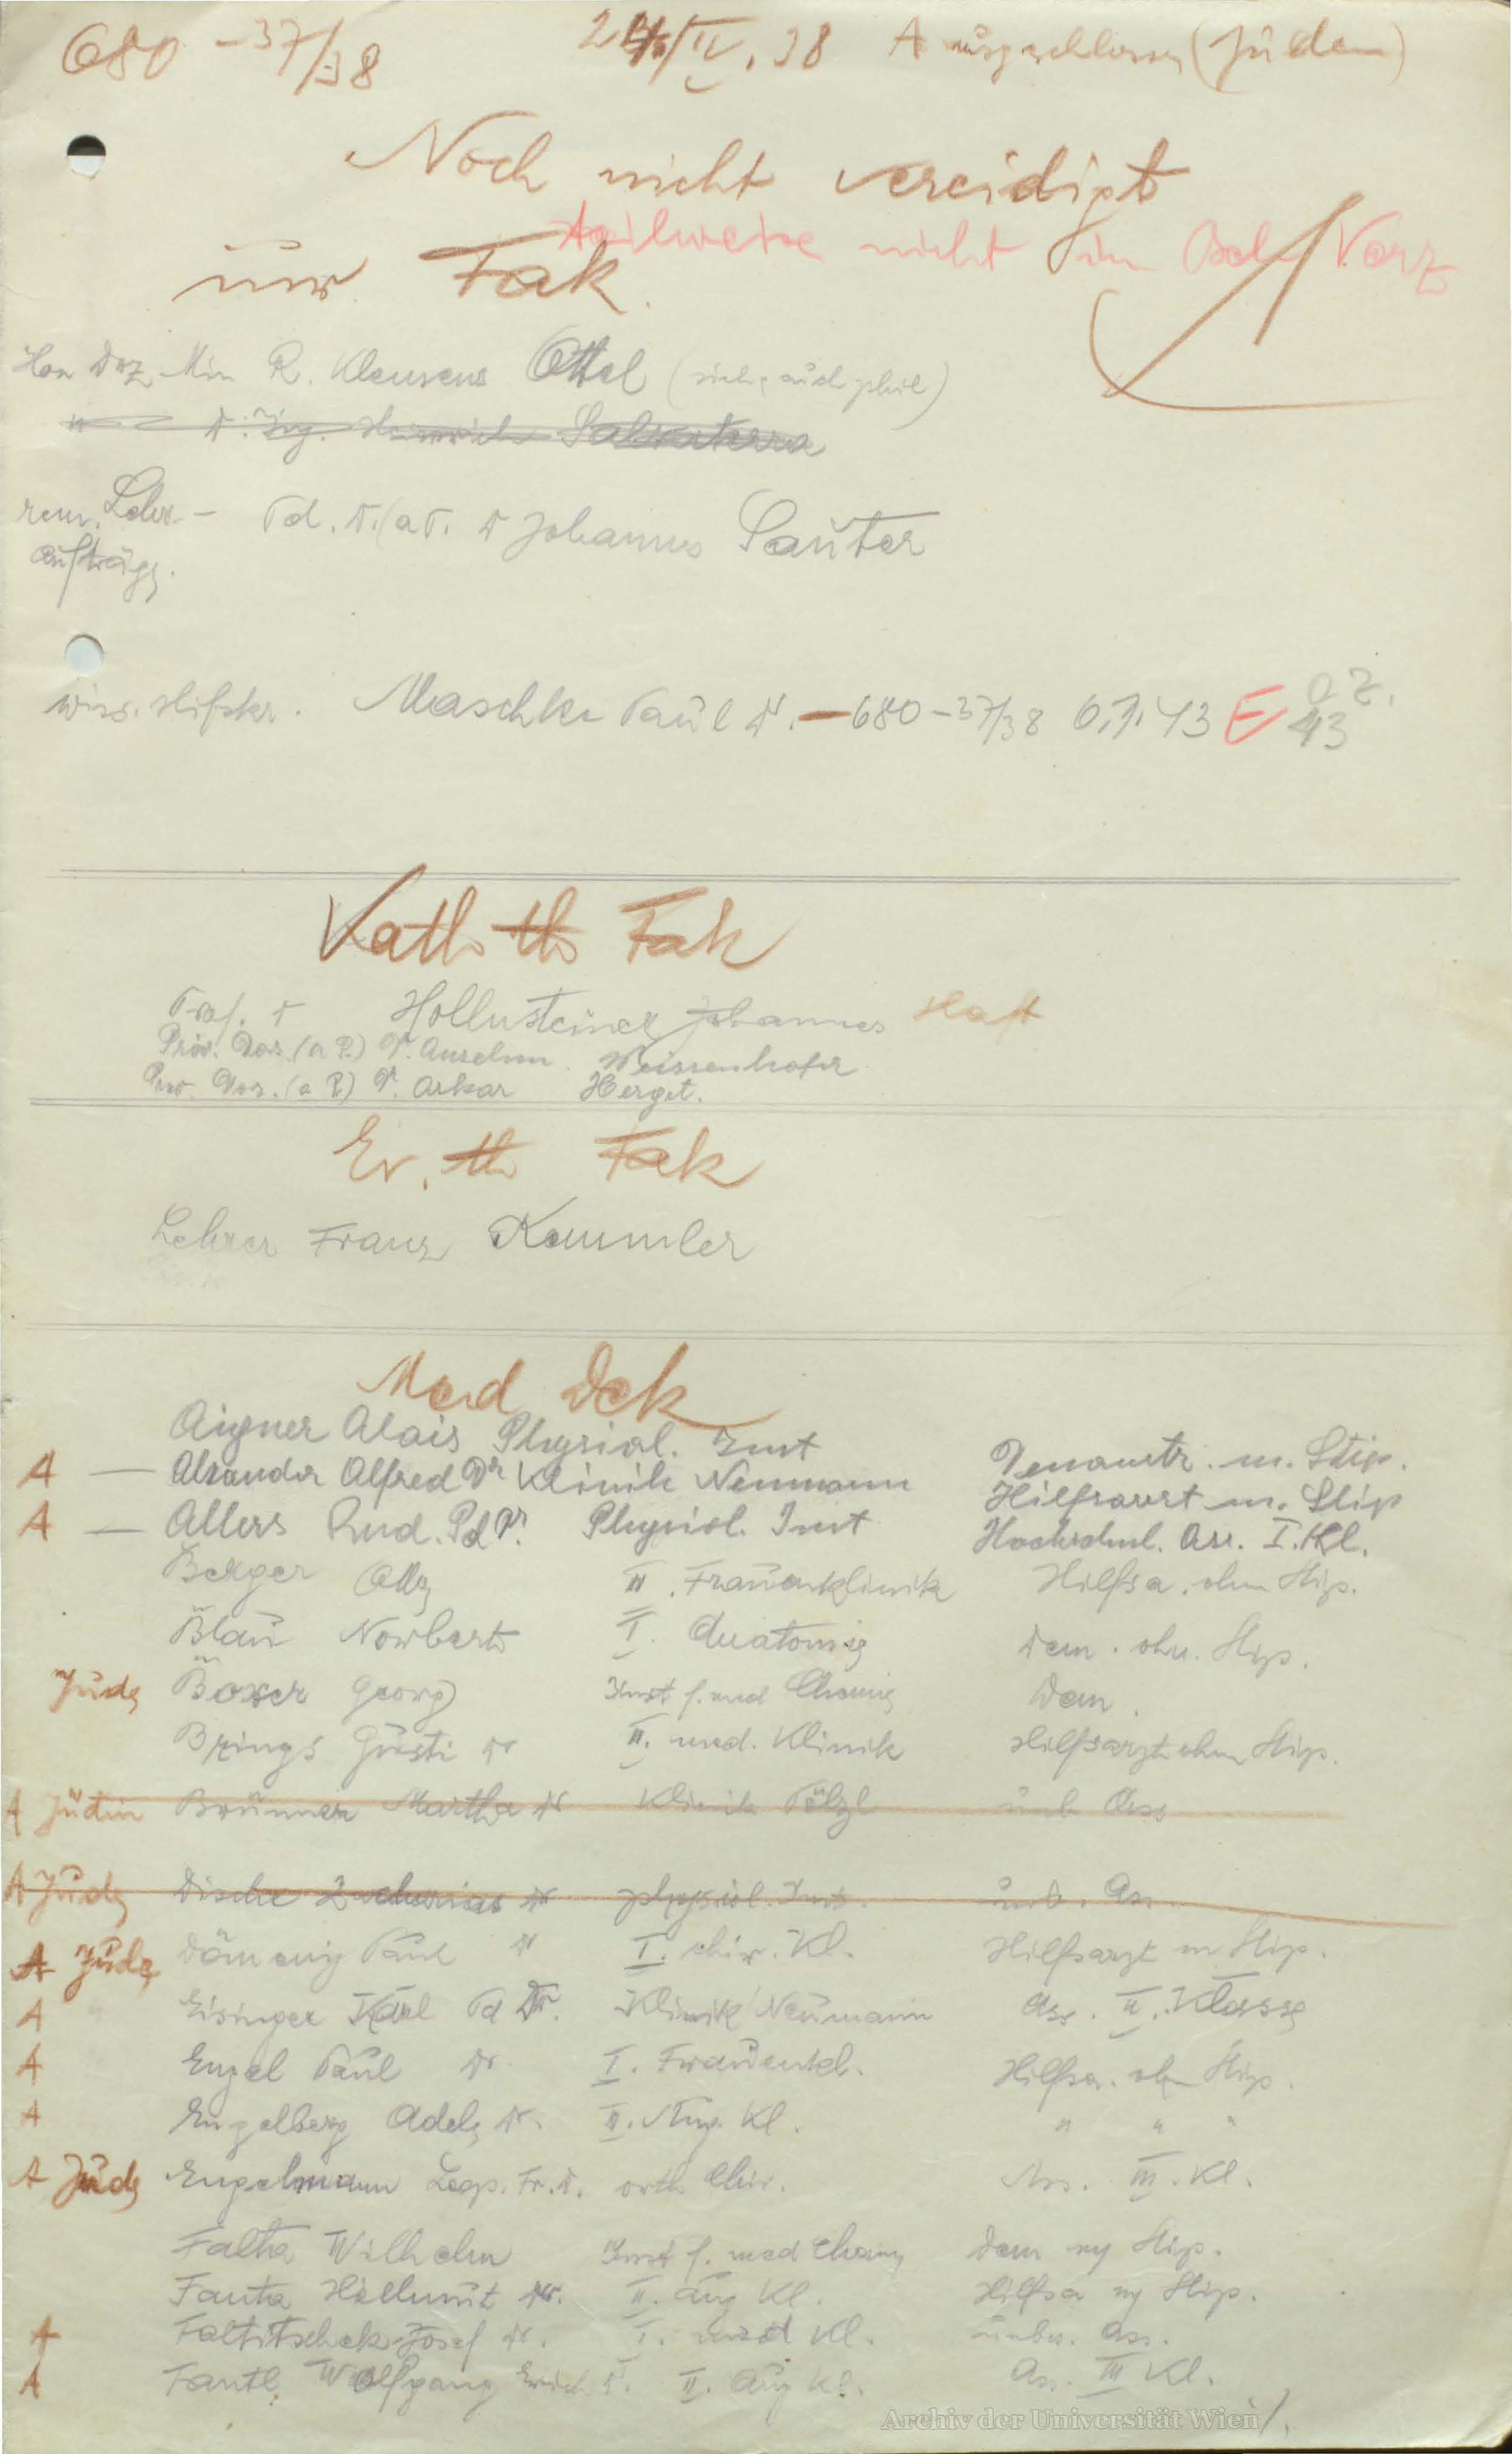 680 - 37/38 2 /IV. 38 A ausgeschlossen (Juden)
Noch nicht vereidigt
teilweise nicht im Vorz
jur Fak.
Hon Doz. Min R. Klemens Ottel (siehe auch phil)
" D. Ing. Heinrich Salvaterra
rem. Lehr- Pd. T. (aP. Dr Johannes Sauter
aufträge.
wiss. Hilfskr. Maschke Paul Dr. - 680-37/38 O.Z. 43 E O.Z. 43
Kath th Fak
Prof. Dr Hollnsteiner Johannes Haft
Priv. Doz. (a P.) Dr. Anselm Weissenhofer
Priv. Doz. (a P.) Dr. Oskar Herget.
Ev. th Fak
Lehrer Franz Kammler
Med Dek
Aigner Alois Physiol. Inst Demonstr. m. Stip.
A — Alexander Alfred Dr Klinik Neumann Hilfsarzt m. Stip
A — Allers Rud. Pd Dr. Physiol. Inst Hochschul. Ass. I. Kl.
Berger II. Frauenklinik Hilfsa. ohne Stip.
Blau Norbert I. Anatomie Dem. ohne Stip.
Jude Boxer Georg Inst f. med Chemie Dem.
Brings Gusti Dr II. med. Klinik Hilfsarzt ohne Stip.
A Jüdin Brunner Martha Dr Klinik Pölzl unb Ass
A Jude Dische Zacharias Dr physiol. Inst. unb. Ass
A Jude Dömeny Paul Dr I. chir. Kl. Hilfsarzt m Stip.
A Eisinger Karl Pd Dr. Klinik Neumann Ass. II. Klasse
A Engel Paul Dr. I. Frauenkl. Hilfsa. ohne Stip.
A Engelberg Adele Dr. II. Aug. Kl. " " "
A Jude Engelmann Leop. Fr. D. orth Chir. Ass. III. Kl.
Falta Wilhelm Inst f. med Chemie Dem m Stip.
Fanta Hellmut Dr. II. Aug Kl. Hilfsa m Stip.
A Faltitschek Josef Dr. I. med Kl. unbes. Ass.
A Fantl Wolfgang Erich D. II. Aug Kl. Ass. III Kl.
Archiv der Universität Wien